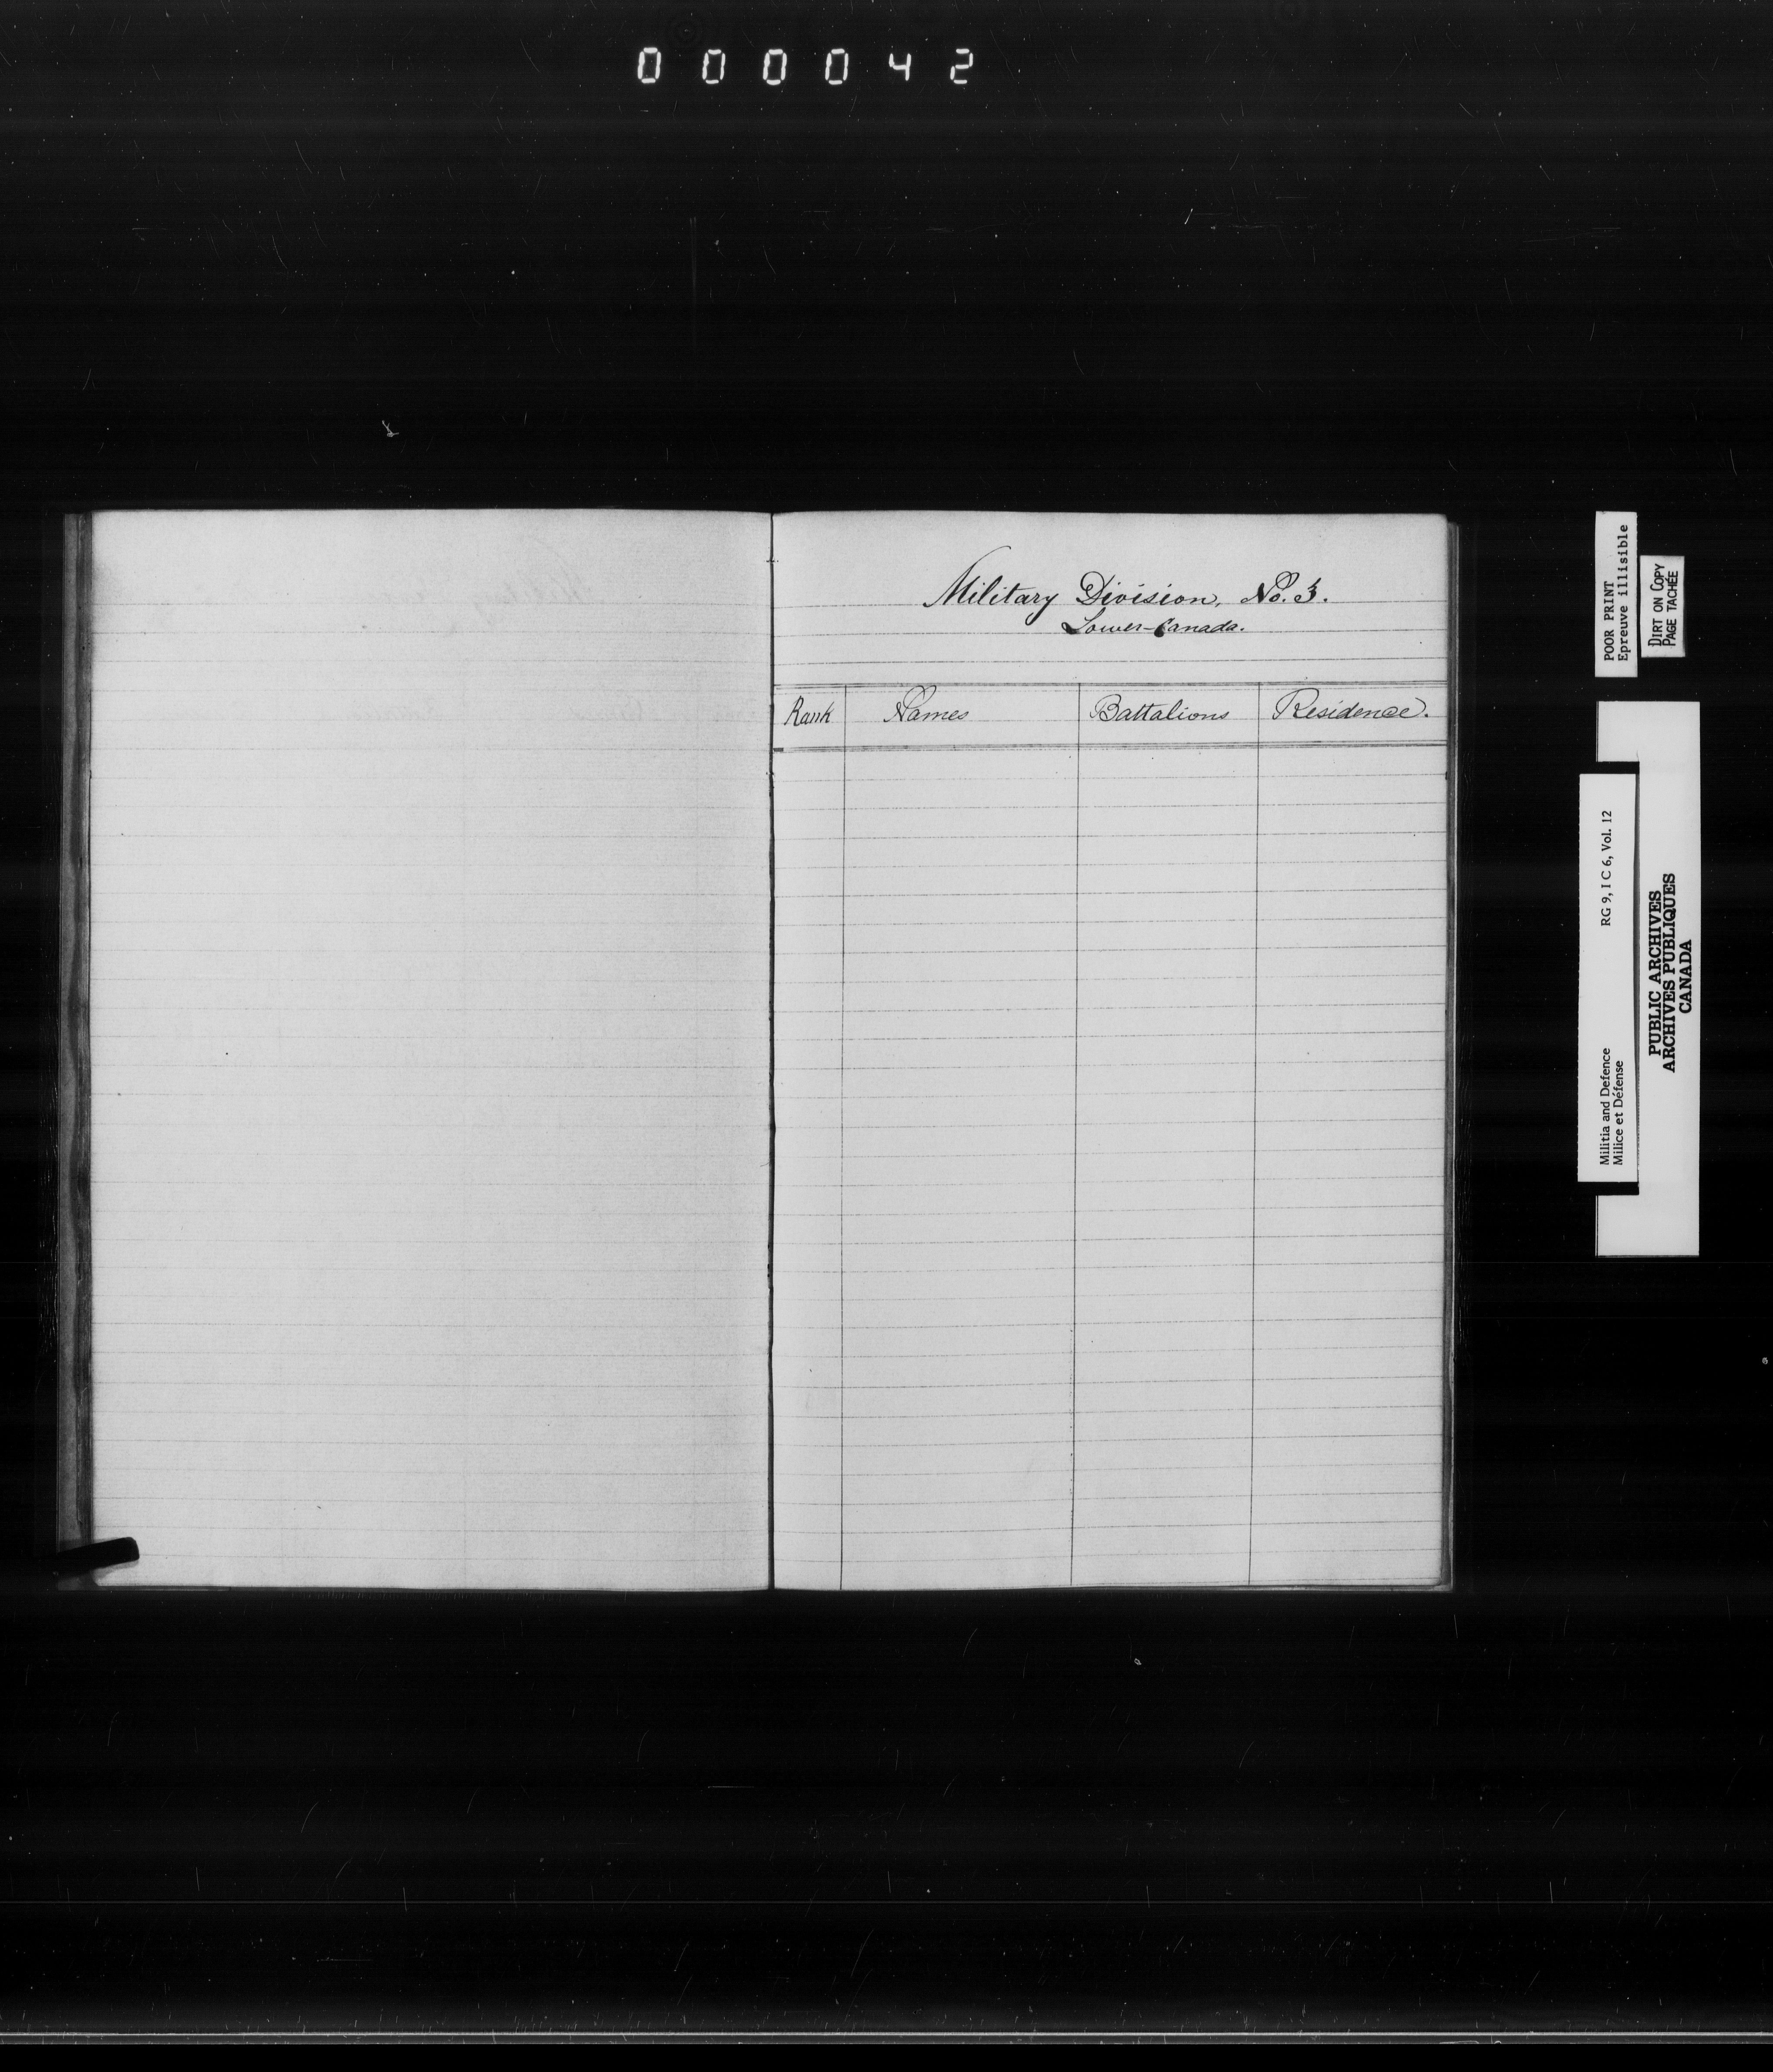 000042
Military Division, No. 3.
Lower-Canada.
Rank Names Battalions Residence.
POOR PRINT
Epreuve illisible
DIRT ON COPY
PAGE TACHÉE
RG 9, I C 6, Vol. 12
Militia and Defence
Milice et Défense
PUBLIC ARCHIVES
ARCHIVES PUBLIQUES
CANADA